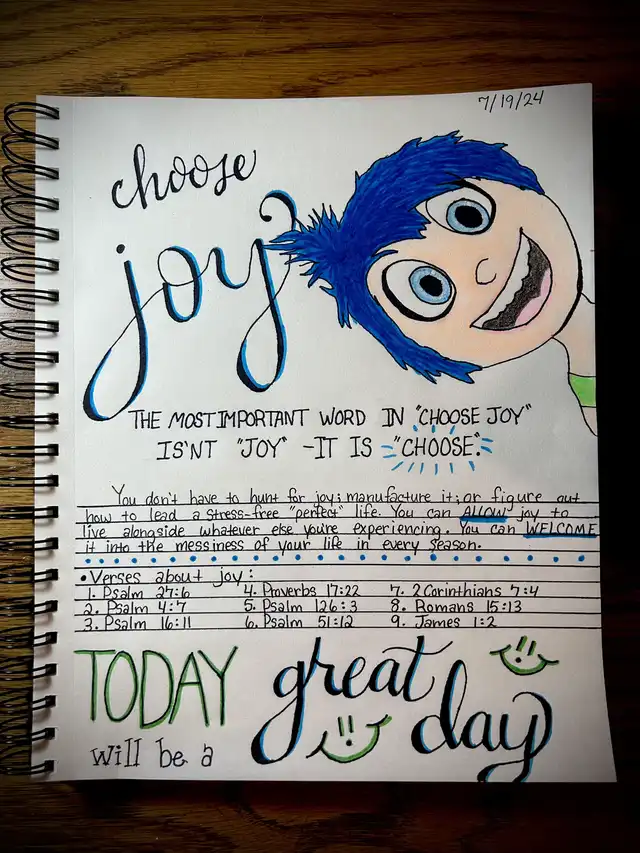 7/19/24
choose
joy
THE MOST IMPORTANT WORD IN "CHOOSE JOY"
IS'NT "JOY" - IT IS "CHOOSE".
You don't have to hunt for joy; manufacture it; or figure out
how to lead a stress-free "perfect" life. You can ALLOW joy to
live alongside whatever else you're experiencing. You can WELCOME
it into the messiness of your life in every season.
• Verses about joy:
1. Psalm 27:6 4. Proverbs 17:22 7. 2 Corinthians 7:4
2. Psalm 4:7 5. Psalm 126:3 8. Romans 15:13
3. Psalm 16:11 6. Psalm 51:12 9. James 1:2
TODAY
will be a
great
day